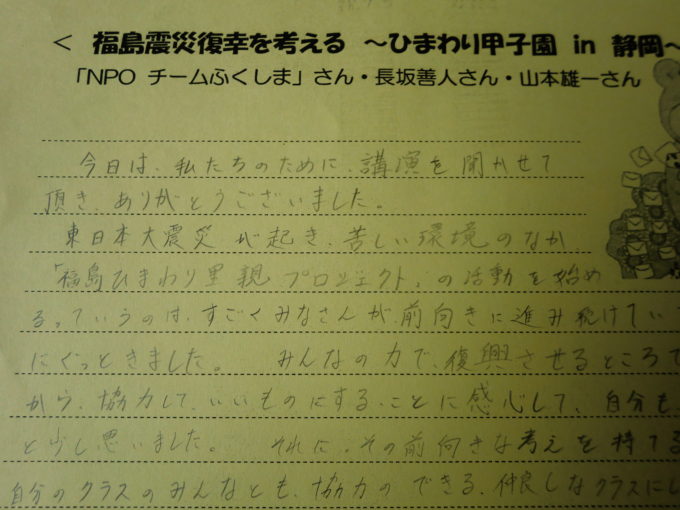 < 福島震災復幸を考える ～ひまわり甲子園 in 静岡～
「NPO チームふくしま」さん・長坂善人さん・山本雄一さん
今日は、私たちのために、講演を聞かせて
頂き、ありがとうございました。
東日本大震災が起き、苦しい環境のなか
「福島ひまわり里親プロジェクト」の活動を始め
るっていうのは、すごくみなさんが前向きに進み続けてい
にぐっときました。 みんなの力で、復興させるところで
から、協力して、いいものにすることに感心して、自分も、
と少し思いました。 それに、その前向きな考えを持てる
自分のクラスのみんなとも、協力のできる、仲良しなクラスにし